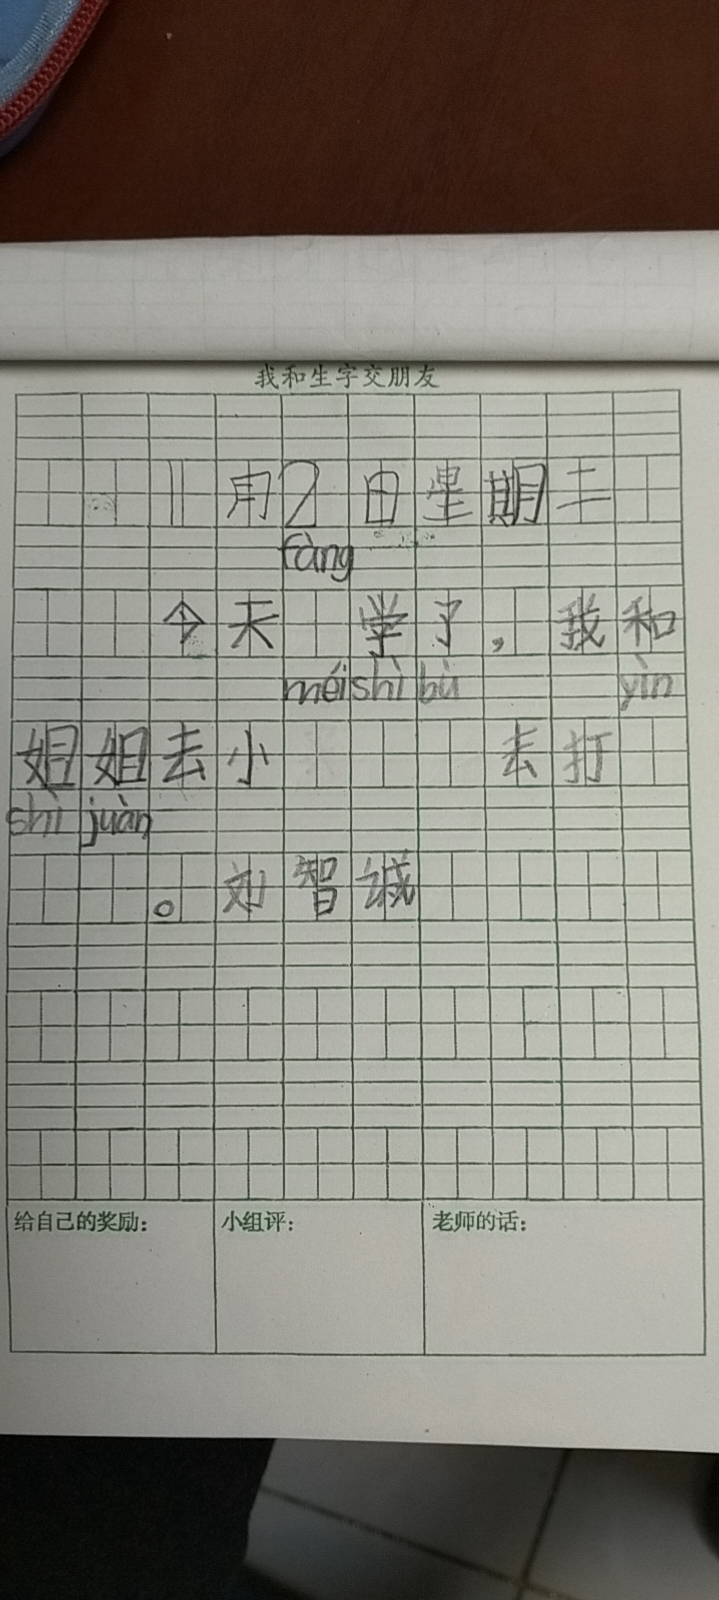 我和生字交朋友
11月2日星期二
fàng
今天 学了，我和
méi shì bù yìn
姐姐去小 去打
shì juàn
。刘智诚
给自己的奖励：
小组评：
老师的话：